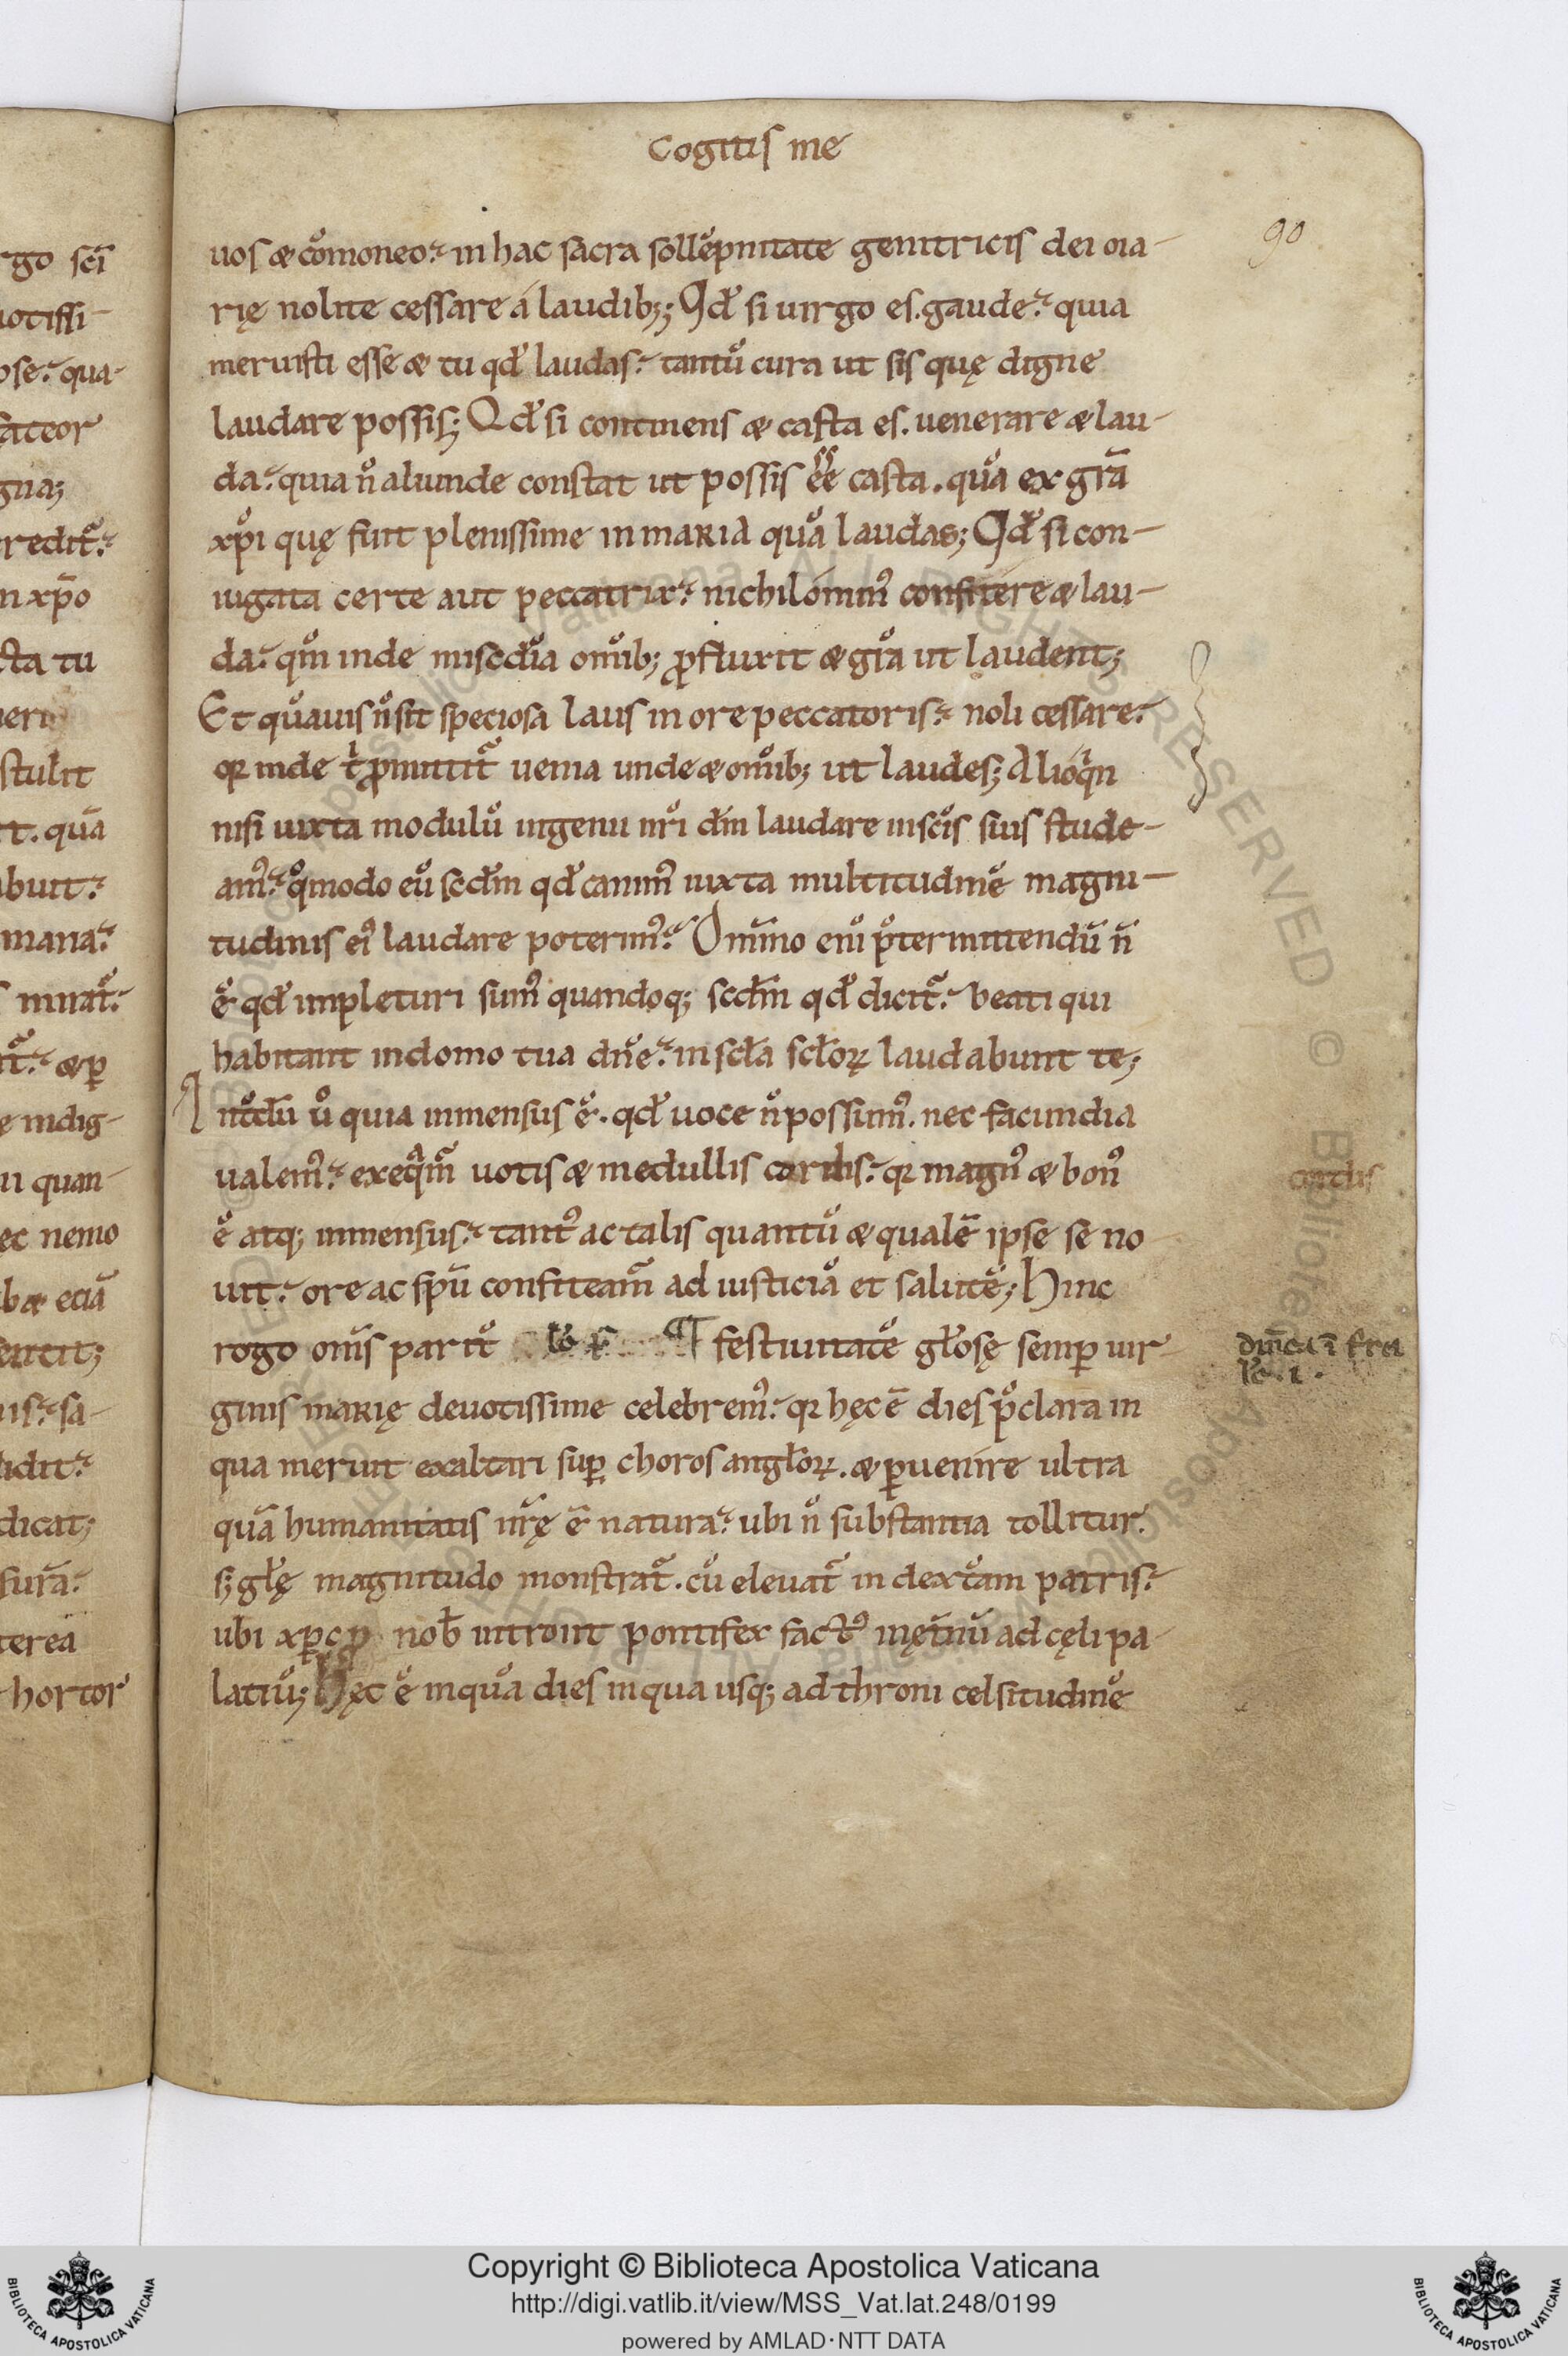 Cogitis me
90
uos & cōmoneo. in hac sacra sollēpnitate genitricis dei ma-
rię nolite cessare á laudib; Qđ si uirgo es. gaude. quia
meruisti esse & tu qđ laudas. tantū cura ut sis quę digne
laudare possis; Qđ si continens & casta es. uenerare & lau-
da. quia n̄ aliunde constat ut possis ēē casta. quā ex gr̄a
xp̄i quę fuit plenissime in maria quā laudas; Qđ si con-
iugata certe aut peccatrix. nichilominꝰ confitere & lau-
da. qm̄ inde miscd̄ia om̄ib; ꝓfluxit & gr̄a ut laudent;
Et quāuis n̄ sit speciosa laus in ore peccatoris. noli cessare.
qꝛ inde tͥ ꝓmittit᷑ uenia unde & om̄ib; ut laudes; Alioqͥn
nisi iuxta modulū ingenii nr̄i dn̄i laudare in sc̄is suis stude-
amꝰ. qͦmodo eū scđm qđ canimꝰ iuxta multitudinē magni-
tudinis eiꝰ laudare poterimꝰ. Om̄ino eni᷑ p̄termittendū n̄
ē qđ impleturi sumꝰ quandoq; scđm qđ dicit᷑. beati qui
habitant in domo tua dn̄e. in scl̄a scl̄oꝝ laudabunt te;
Int̄dū u̇ quia inmensus ē. qđ uoce n̄ possumꝰ. nec facundia
ualemꝰ. exeqͣm᷑ uotis & medullis cordis. qꝛ magnꝰ & bonꝰ
cordis
ē atq; inmensus. tantꝰ ac talis quantū & qualē ipse se no
uit. ore ac sp̄u confiteam᷑ ad iusticiā et salutē; Hinc
rogo om̄s parit᷑ ¶ festiuitatē gl̄osę semꝑ uir-
ginis marię deuotissime celebremꝰ. qꝛ hęc ē dies p̄clara in
qua meruit exaltari suꝑ choros angl̄oꝝ. & ꝑuenire ultra
quā humanitatis nr̄ę ē natura. ubi n̄ substantia tollitur.
s; gl̄ę magnitudo monstrat᷑. cū eleuat᷑ in dext̄am patris.
ubi xp̄c ꝓ nob̄ introiit pontifex factꝰ in ęt̄nū ad cęli pa-
latiū; Hęc ē inquā dies in qua usq; ad throni celsitudinē
Copyright © Biblioteca Apostolica Vaticana
http://digi.vatlib.it/view/MSS_Vat.lat.248/0199
powered by AMLAD·NTT DATA
BIBLIOTECA APOSTOLICA VATICANA
BIBLIOTECA APOSTOLICA VATICANA